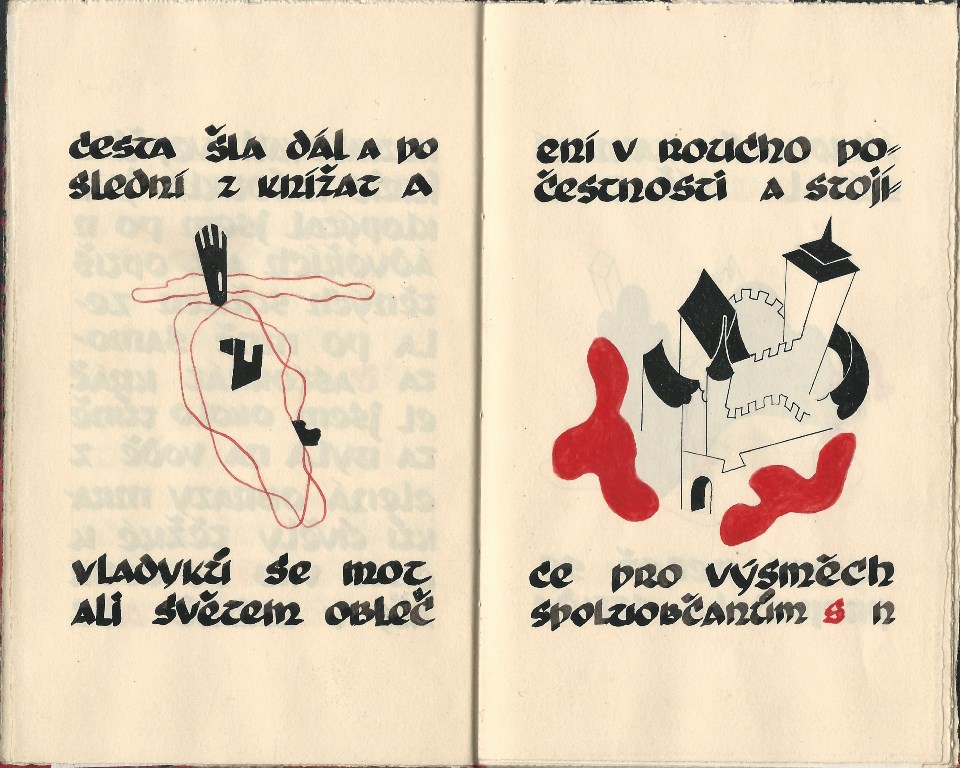 cesta šla dál a po
slední z knížat a
vladyků se mot
ali světem obleč
ení v roucho po=
čestnosti a stojí=
ce pro výsměch
spoluobčanům s n